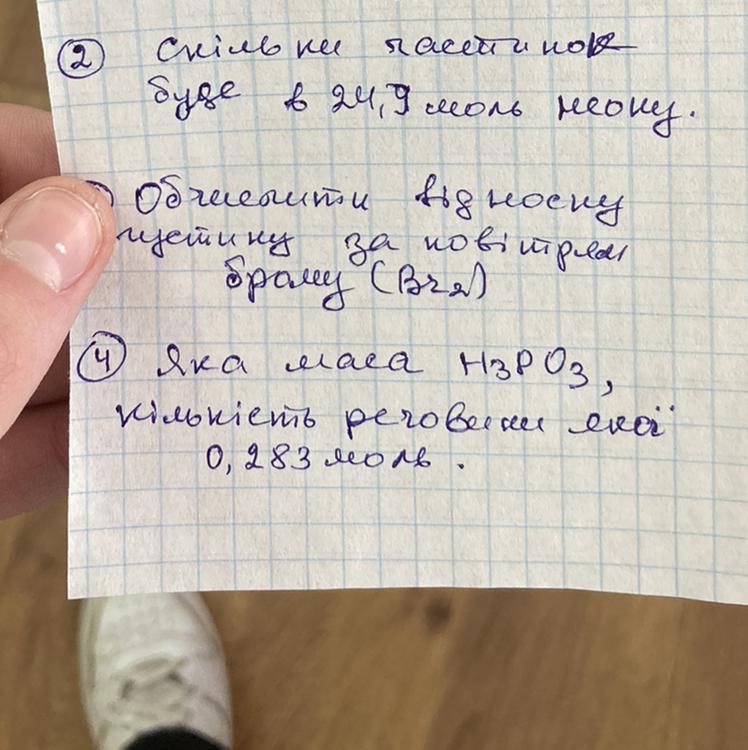 ② Скільки частинок
буде в 24,9 моль неону.
Обчислити відносну
густину за повітрям
брому (Br2)
④ Яка маса H3PO3,
кількість речовини якої
0,283 моль.